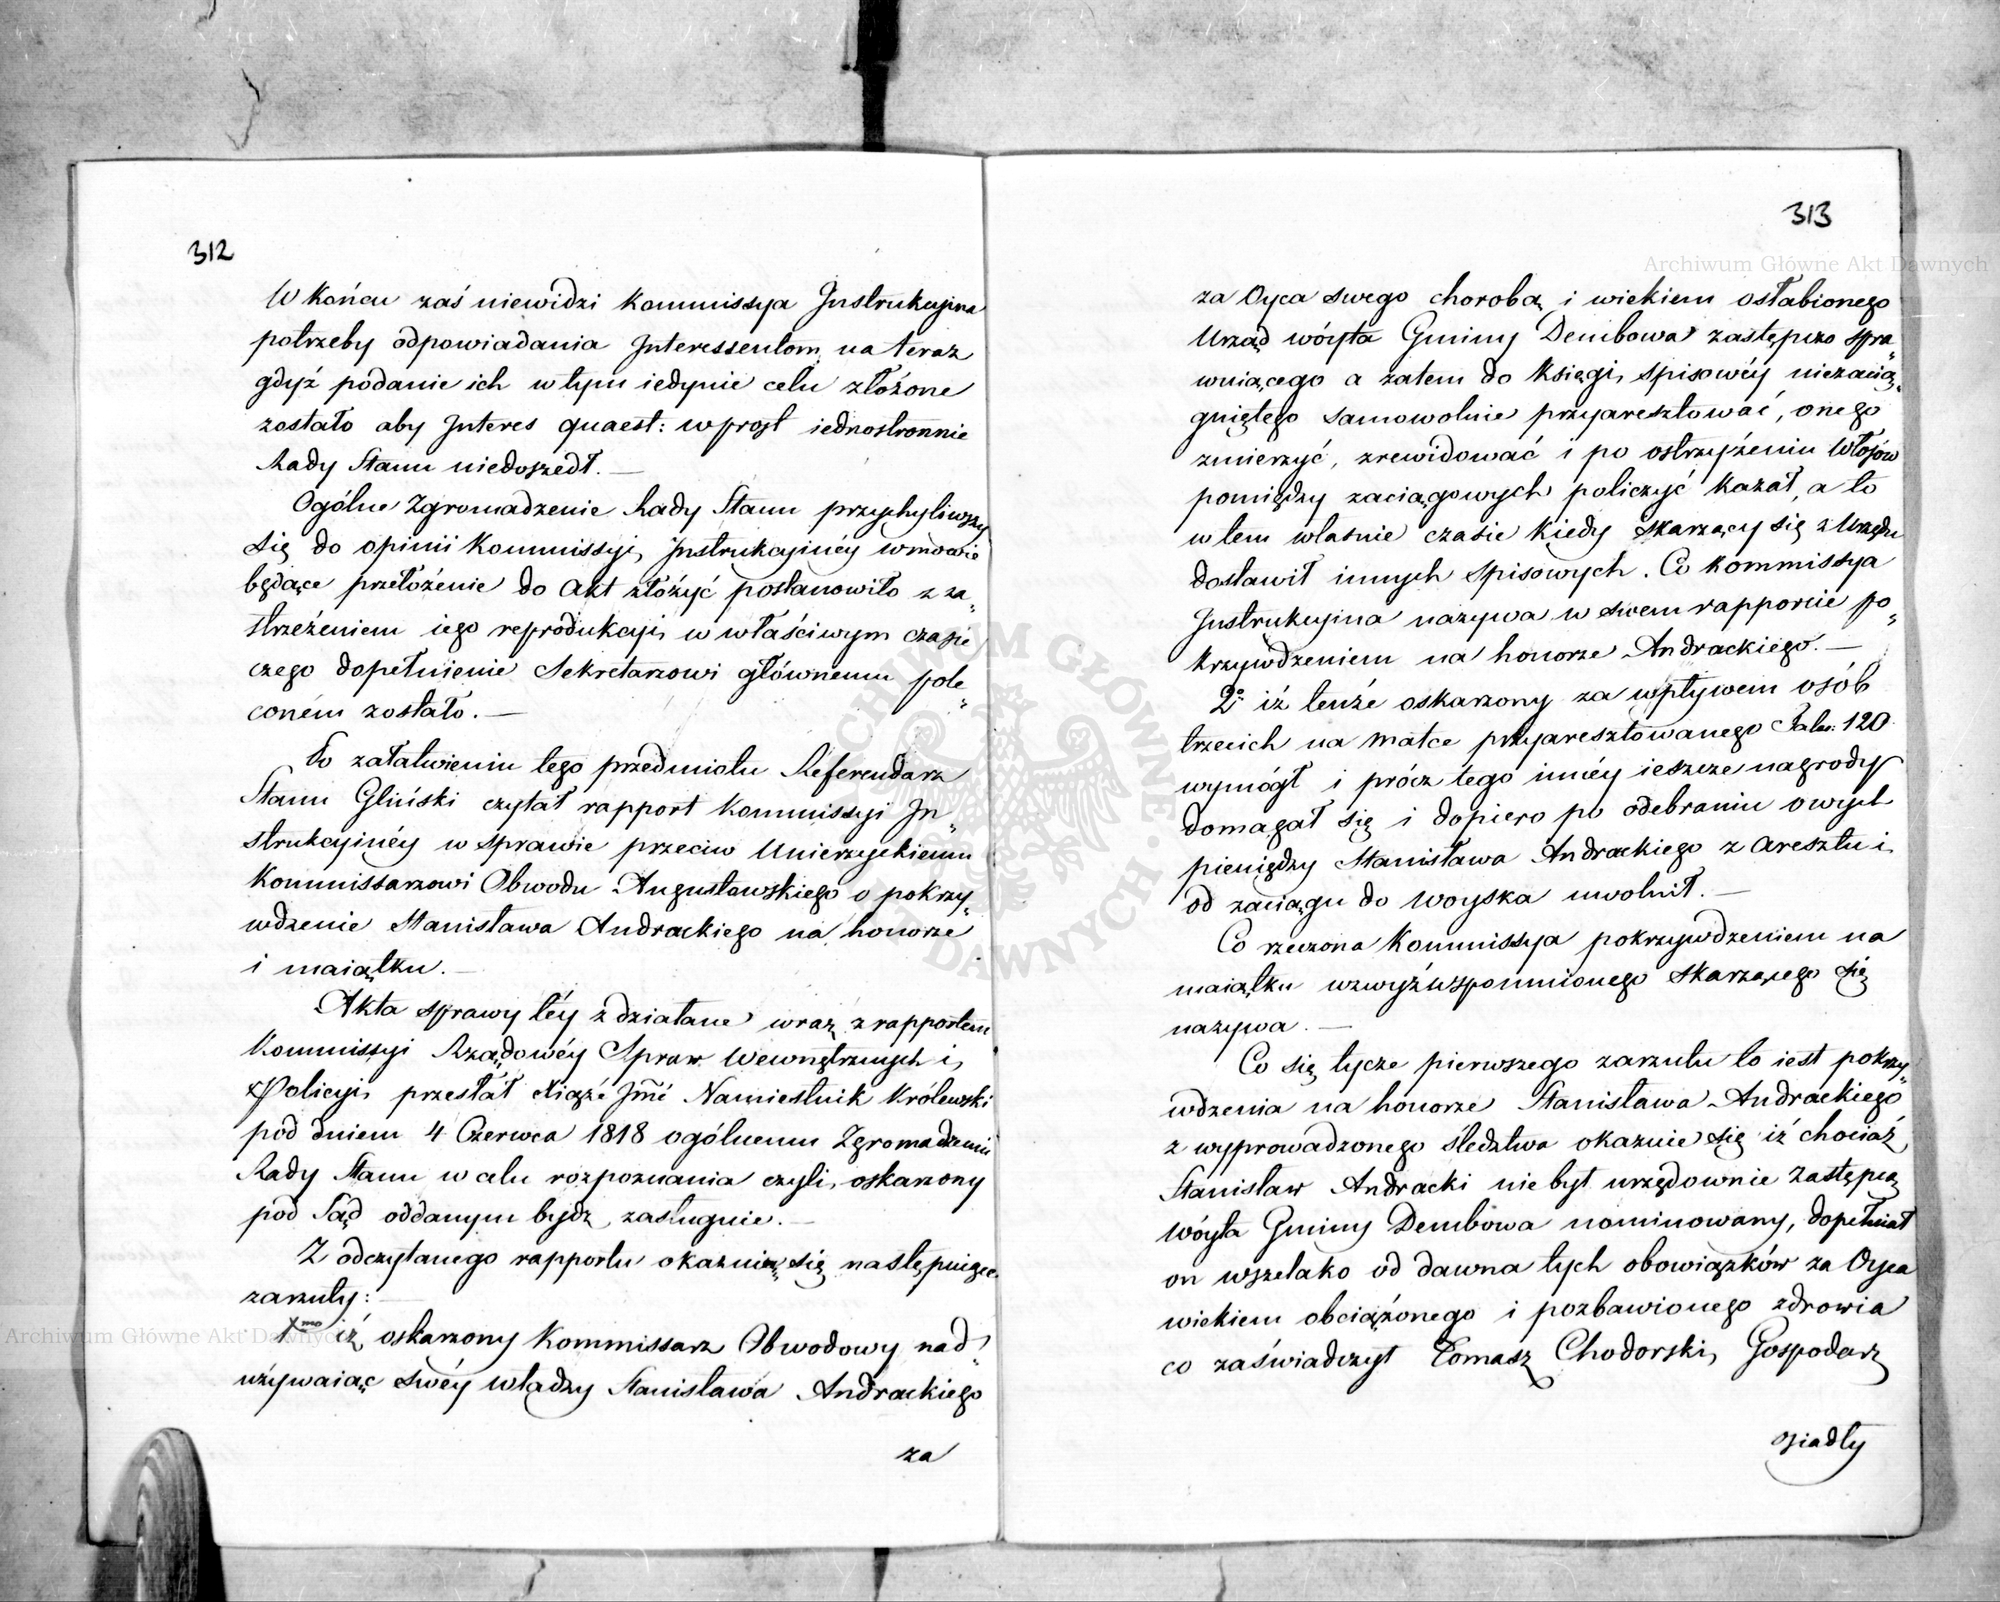 312
W końcu zaś niewidzi Kommissya Instrukcyjna
potrzeby odpowiadania Interessentom na teraz
gdyż podanie ich w tym iedynie celu złożone
zostało aby Interes quaest: wprost iednostronnie
Rady Stanu niedoszedł. —
Ogólne Zgromadzenie Rady Stanu przychyliwszy
się do opinii Kommissyi Instrukcyinéy w mowie
będące przełożenie do Akt złożyć postanowiło z za„
strzeżeniem iego reprodukcyi w właściwym czasie
czego dopełnienie Sekretarzowi głównemu pole„
coném zostało. —
Po załatwieniu tego przedmiotu Referendarz
Stanu Gliński czytał rapport Kommissyi In„
strukcyinéy w sprawie przeciw Unierzyckiemu
Kommissarzowi Obwodu Augustawskiego o pokrzy„
wdzenie Stanisława Andrackiego na honorze
i maiątku. —
Akta sprawy téy zdziałane wraz z rapportem
Kommissyi Rządowéy Spraw Wewnętrznych i
Policyi, przesłał Xiąże Jmć Namiestnik Królewski
pod dniem 4 Czerwca 1818 ogólnemu Zgromadzeniu
Rady Stanu w celu rozpoznania czyli oskarzony
pod Sąd oddanym bydz zasługuie. —
Z odczytanego rapportu okazuią się następuiące
zarzuty: —
1mo iż oskarzony Kommissarz Obwodowy nad„
używaiąc swéy władzy Stanisława Andrackiego
za
313
za Oyca swego chorobą i wiekiem osłabionego
Urząd wóyta Gminy Dembowa zastępczo spra„
wuiącego a zatem do księgi spisowéy niezacią„
gniętego samowolnie przyaresztować, onego
zmierzyć, zrewidować i po ostrzyżeniu włosów
pomiędzy zaciągowych policzyć kazał, a to
w tem własnie czasie kiedy skarzący się z Urzędu
dostawił innych spisowych. Co Kommissya
Instrukcyjna nazywa w swem rapporcie po„
krzywdzeniem na honorze Andrackiego. —
2o iż tenże oskarzony za wpływem osób
trzecich na matce przyaresztowanego Talar: 120
wymógł i prócz tego innéy ieszcze nagrody
domagał się i dopiero po odebraniu owych
pieniędzy Stanisława Andrackiego z aresztu i
od zaciągu do woyska uwolnił. —
Co rzeczona Kommissya pokrzywdzeniem na
maiątku wzwyżwspomnionego skarzącego się
nazywa. —
Co się tycze pierwszego zarzutu to iest pokrzy„
wdzenia na honorze Stanisława Andrackiego
z wyprowadzonego śledztwa okazuie się iż chociaż
Stanisław Andracki nie był urzędownie Zastępcą
wóyta Gminy Dembowa nominowany, dopełniał
on wszelako od dawna tych obowiązków za Oyca
wiekiem obciążonego i pozbawionego zdrowia
co zaświadczył Tomasz Chodorski, Gospodarz
osiadły
Archiwum Główne Akt Dawnych
Archiwum Główne Akt Dawnych
ARCHIWUM GŁÓWNE AKT DAWNYCH